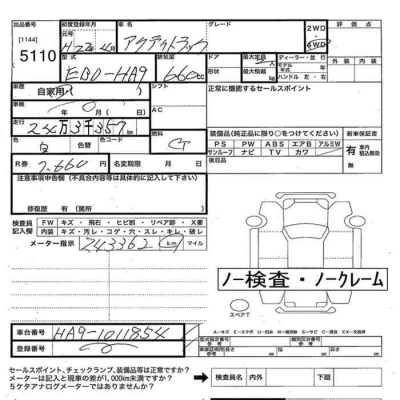 出品番号 初度登録年月 車名 グレード 2WD 評価点
[1144] 元号 アクティトラック 4WD
5110 H22年4月
型式 排気量 最大定員 人 ディーラー・並行 外装 内装
EBD-HA9 660cc 最大積載 kg モデル年式 年
ハンドル 左・右
車歴 シフト 正常に機能するセールスポイント
自家用
車検 AC
年 月 日
走行
24万3千357km 燃料 装備品(純正品に限り○をつけてください) 新車保証書
色 色替 色コード PS PW ABS エアB アルミW 有 車内積込無効
白 サンルーフ ナビ TV カワ 無
R券 7,660円 名変期限 月 日 後日品
注意事項申告欄(不具合内容等は具体的に記入して下さい)
修復歴 有(箇所 )
検査員記入欄 FW キズ・飛石・ヒビ割・リペア跡・X要
内装 キズ・汚レ・コゲ・穴・スレ・キレ・破レ
メーター指示 243362 km マイル
ノー検査・ノークレーム
スペアT
A=キズ
車台番号 HA9-1011854 型式指定番号 類別区分番号
登録番号 長さ 幅 高さ
セールスポイント、チェックランプ、装備品等は正常ですか?
メーターは記入と現車の差が1,000km未満ですか?
5ケタアナログメーターではありませんか?
検査員名 内外 下廻